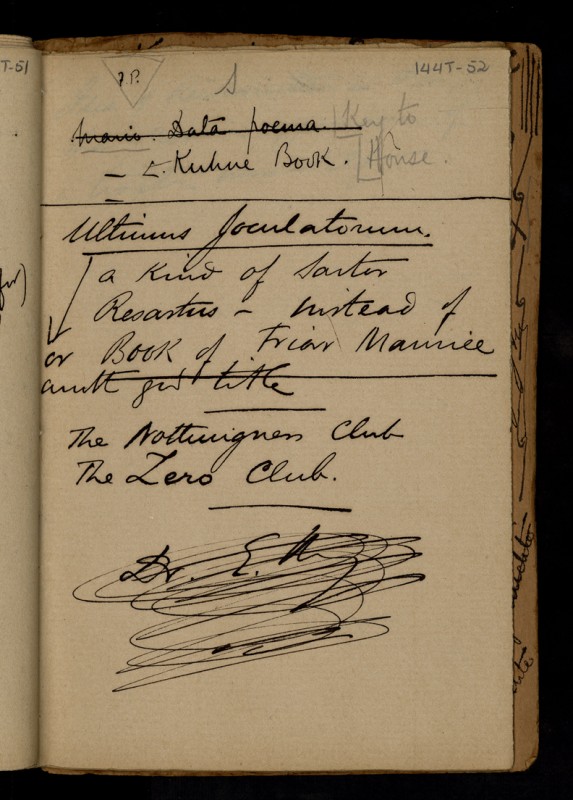 T-51
144T-52
F.P.
S
Mario. Data poema. Key to
Kuhne Book. House.
Ultimus Joculatorum.
a kind of Sartor
Resartus - instead of
or Book of Friar Maurice
title
The Nothingness Club
The Zero Club.
Dr. E.